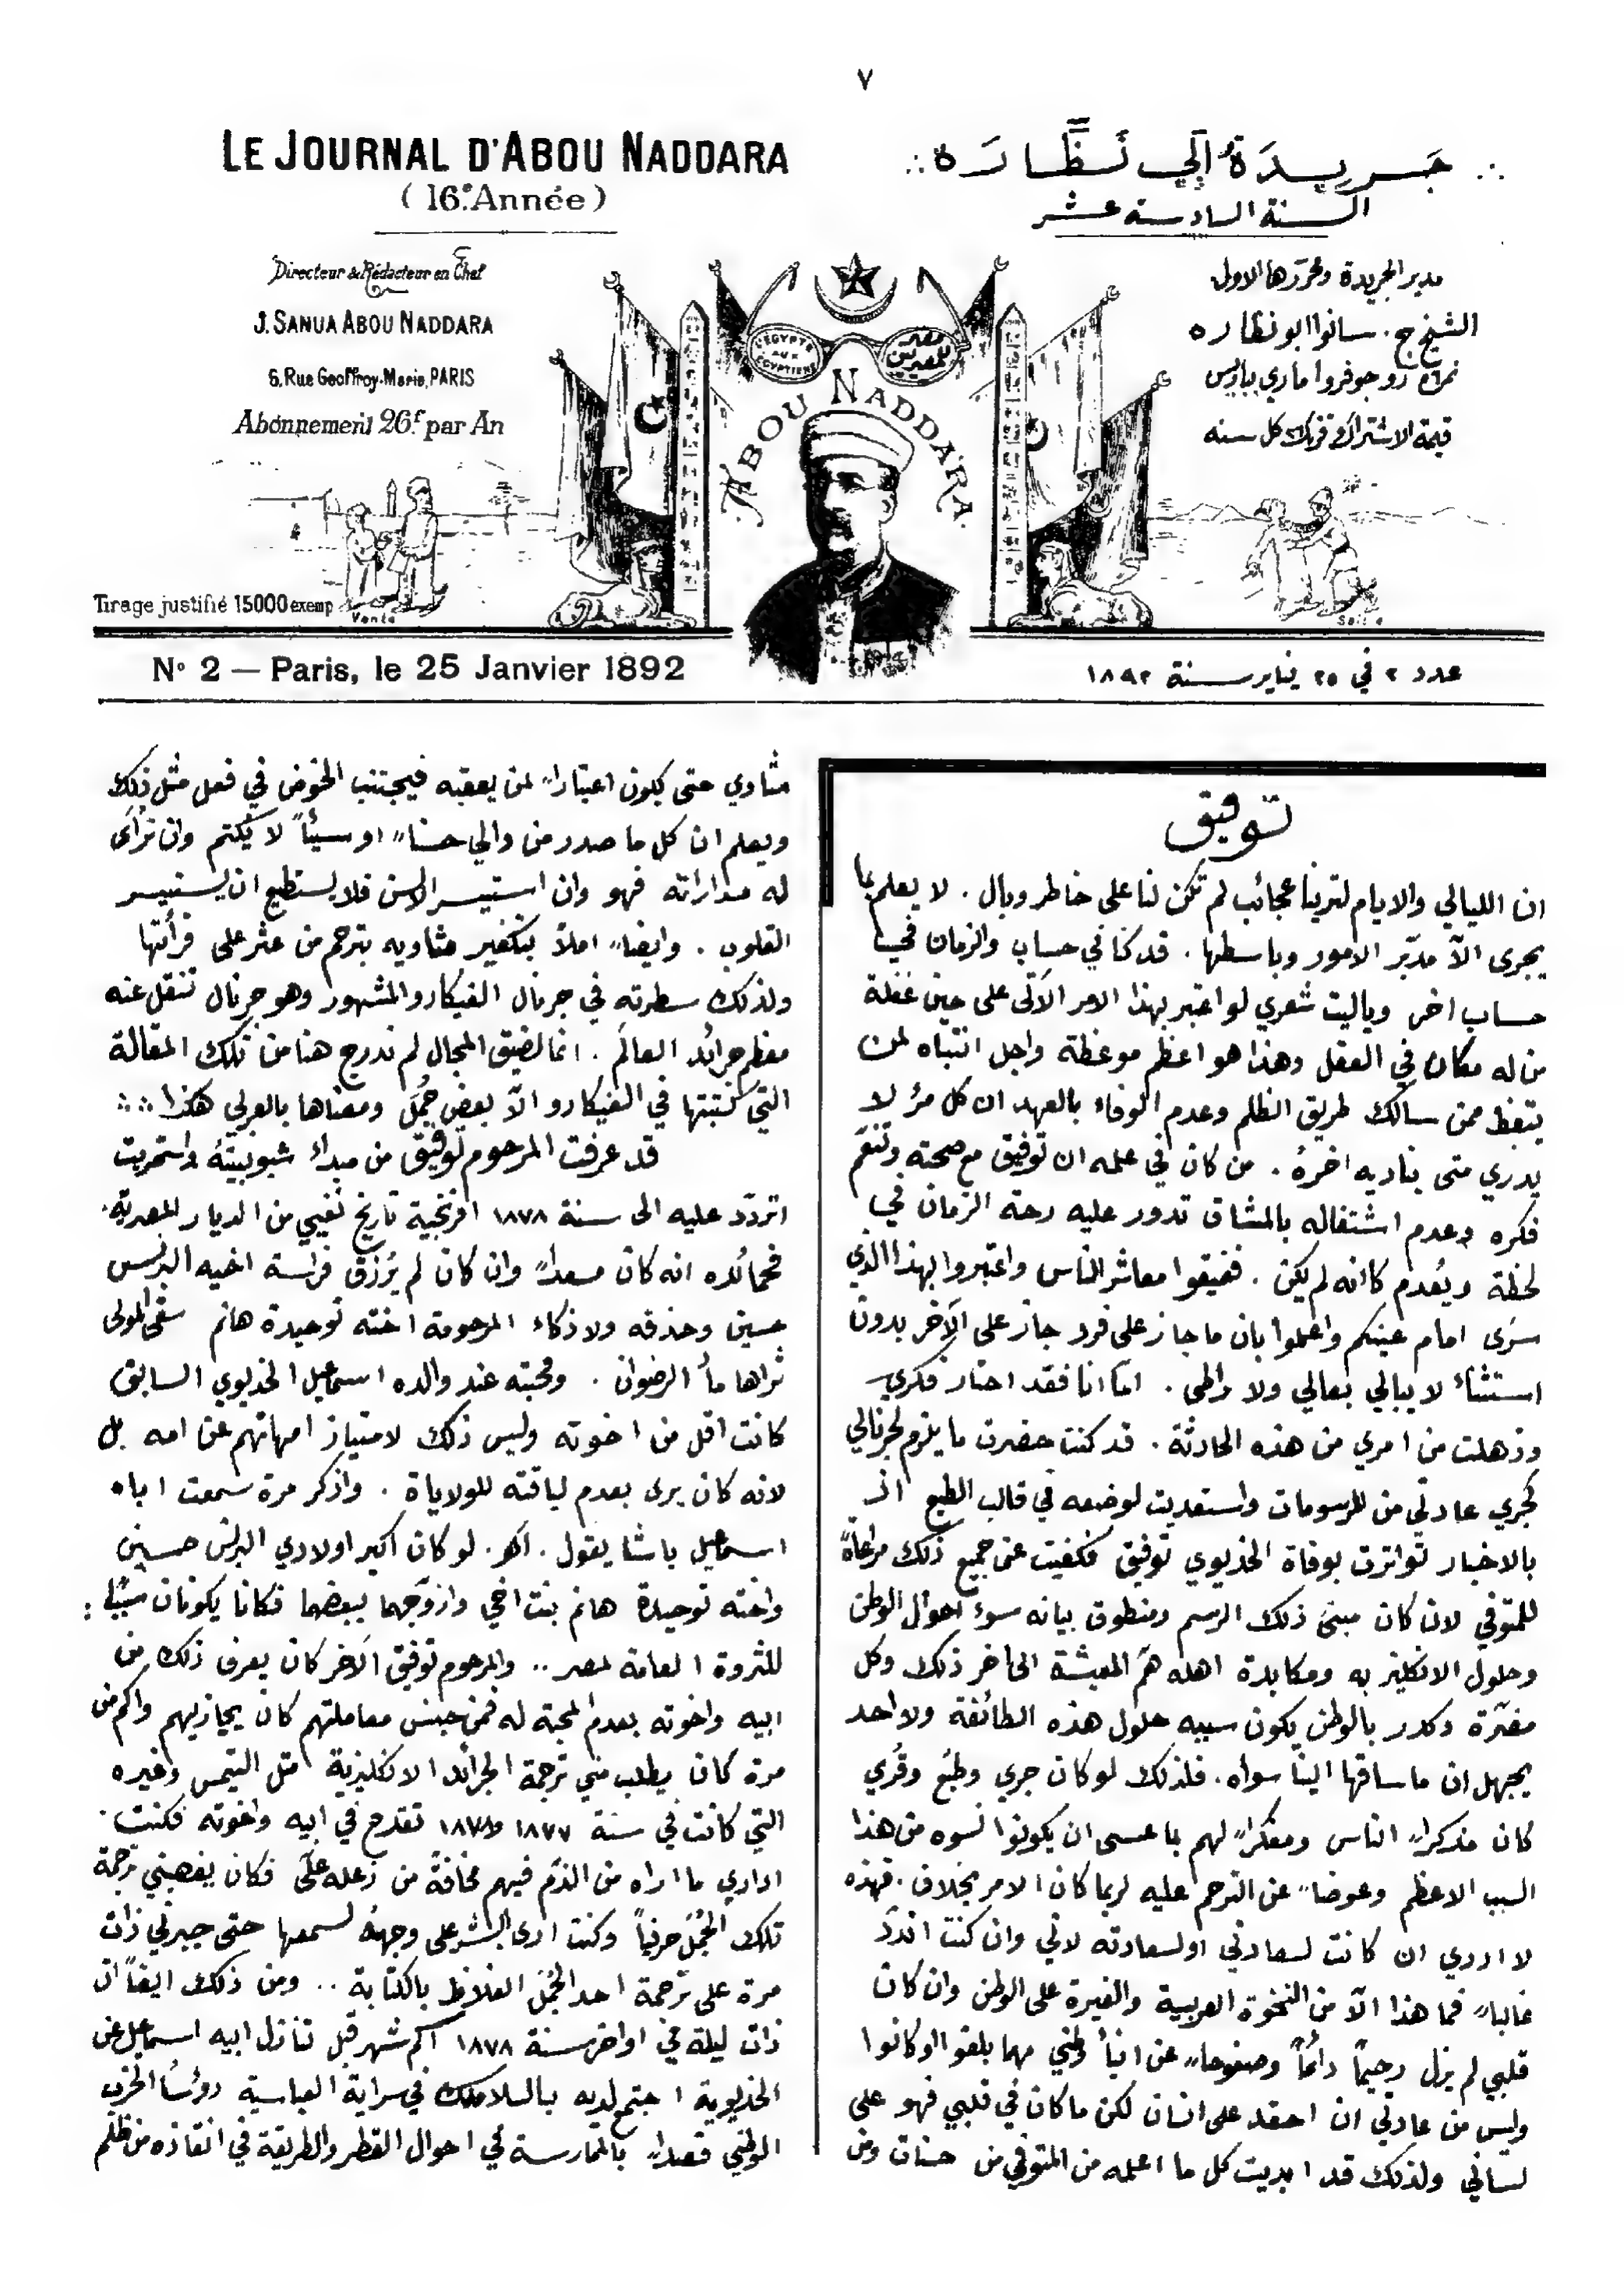 ٧
LE JOURNAL D'ABOU NADDARA
(16e Année)
جَريدَةُ أبي نَظَّارَة
السنة السادسة عشر
Directeur & Rédacteur en Chef
J. SANUA ABOU NADDARA
6, Rue Geoffroy-Marie, PARIS
Abonnement 26f par An
مدير الجريدة ومحرّرها الاول
الشيخ ج. سانوا ابو نظاره
نمرة ٦ رو جوفروا ماري بباريس
قيمة الاشتراك فرنك كل سنه
L'EGYPTE AUX EGYPTIENS
مصر للمصريين
ABOU NADDARA
Tirage justifié 15000 exemp
Vente
N° 2 — Paris, le 25 Janvier 1892
عدد ٢ في ٢٥ يناير سنة ١٨٩٢
توفيق
ان الليالي والايام لترينا عجائب لم تكن لنا على خاطر وبال. لا يعلم بما
يجرى الاّ مدبّر الامور وباسطها. قد كنا في حساب والزمان في
حساب اخر وياليت شعري لو اعتبر بهذا الامر الآتى على حين غفلة
من له مكان في العقل وهذا هو اعظم موعظة واجل انتباه لمن
يتعظ ممن سالك طريق الظلم وعدم الوفاء بالعهد ان كل مرٔ لا
يدري متى يناديه اخرهُ. من كان في علمه ان توفيق مع صحته وتنعّم
فكره وعدم اشتغاله بالمشاق تدور عليه رحة الزمان في
لحظة ويُعدم كانه لم يكن. ففيقوا معاشر الناس واعتبروا بهذا الذي
سرَى امام عينكم واعلموا بان ما جاز على فرد جاز على الآخر بدون
استثناء لا يبالي بعالي ولا واطى. امّا انا فقد احتار فكري
وذهلت من امري من هذه الحادثة. قد كنت حضرت ما يلزم لجرنالي
كجري عادتي من الرسومات واستعديت لوضعه في قالب الطبع اذ
بالاخبار تواترت بوفاة الخديوي توفيق فكفيت عن جميع ذلك مراعاةً
للمتوفي لان كان مبنى ذلك الرسم ومنطوق بيانه سوء احوال الوطن
وحلول الانكليز به ومكابدة اهله همّ المعيشة الى اخر ذلك وكل
مضرّة وكدر بالوطن يكون سببه حلول هذه الطائفة ولا احد
يجهل ان ما ساقها الينا سواه. فلذلك لو كان جري وطبُع وقُري
كان مذكراً الناس ومفكراً لهم بما عسى ان يكونوا نسوه من هذا
السبب الاعظم وعوضاً عن الترحم عليه لربما كان الامر بخلاف. فهذه
لا ادري ان كانت لسعادتي او لسعادته لاني وان كنت اندّد
غالباً فما هذا الاّ من النخوة العربية والغيرة على الوطن وان كان
قلبي لم يزل رحيماً دائماً وصفوحاً عن ابناء وطني مهما بلغوا او كانوا
وليس من عادتي ان احقد على انسان لكن ما كان في قلبي فهو على
لساني ولذلك قد ابديت كل ما اعلمه من المتوفي من حسنات ومن
مثاوي حتى يكون اعتباراً لمن يعقبه فيجتنب الخوض في فعل مثل ذلك
ويعلم ان كل ما صدر من والي حسناً او سيئاً لا يُكتم وان تراَى
له مداراته فهو وان استيسر الالسن فلا يستطيع ان يستيسر
القلوب. وايضاً املاً بتكفير مثاويه بترحم من عثر على قرأتها
ولذلك سطرته في جرنال الفيكارو المشهور وهو جرنال تنقل عنه
معظم جرائد العالَم. انما لضيق المجال لم ندرج هنا من تلك المقالة
التي كتبتها في الفيكارو الاّ بعض جُمَل ومعناها بالعربي هكذا
قد عرفت المرحوم توفيق من مبداء شبوبيتهُ واستمريت
اتردّد عليه الى سنة ١٨٧٨ افرنجية تاريخ نفيي من الديار المصرية.
فحمائده انه كان مسعداً وان كان لم يُرزق فراسة اخيه البرنس
حسين وحذقه ولا ذكاء المرحومة اخته توحيدة هانم سقى المولى
ثراها ماُ الرضوان. ومحبته عند والده اسماعيل الخديوي السابق
كانت اقل من اخوته وليس ذلك لامتياز امهاتهم عن امه بل
لانه كان يرى بعدم لياقته للولاياة. واذكر مرة سمعت اباه
اسماعيل باشا يقول. آهو. لو كان اكبر اولادي البرنس حسين
واخته توحيدة هانم بنت اخي وازوّجهما ببعضهما فكانا يكونان سبباً
للثروة العامة لمصر.. والمرحوم توفيق الآخر كان يعرف ذلك من
ابيه واخوته بعدم المحبة له فمن جنس معاملتهم كان يجازيهم واكم من
مرة كان يطلب مني ترجمة الجرائد الانكليزية مثل التيمس وغيره
التي كانت في سنة ١٨٧٧ و١٨٧٨ تقدح في ابيه واخوته فكنت
اداري ما اراه من الذم فيهم مخافةً من زعله علَى فكان يغصبني ترجمة
تلك الجُمَل حرفياً وكنت ارى البشر على وجههُ لسمعها حتى جبرني ذات
مرة على ترجمة احد الجُمَل الغلاظ بالكتابة.. ومن ذلك ايضاً ان
ذات ليلة في اواخر سنة ١٨٧٨ اكم شهر قبل تنازل ابيه اسماعيل عن
الخديوية اجتمع لديه بالسلاملك في سراية العباسية رؤساُ الحزب
الوطني قصداً بالممارسة في احوال القطر والطريقة في انقاذه من ظلم